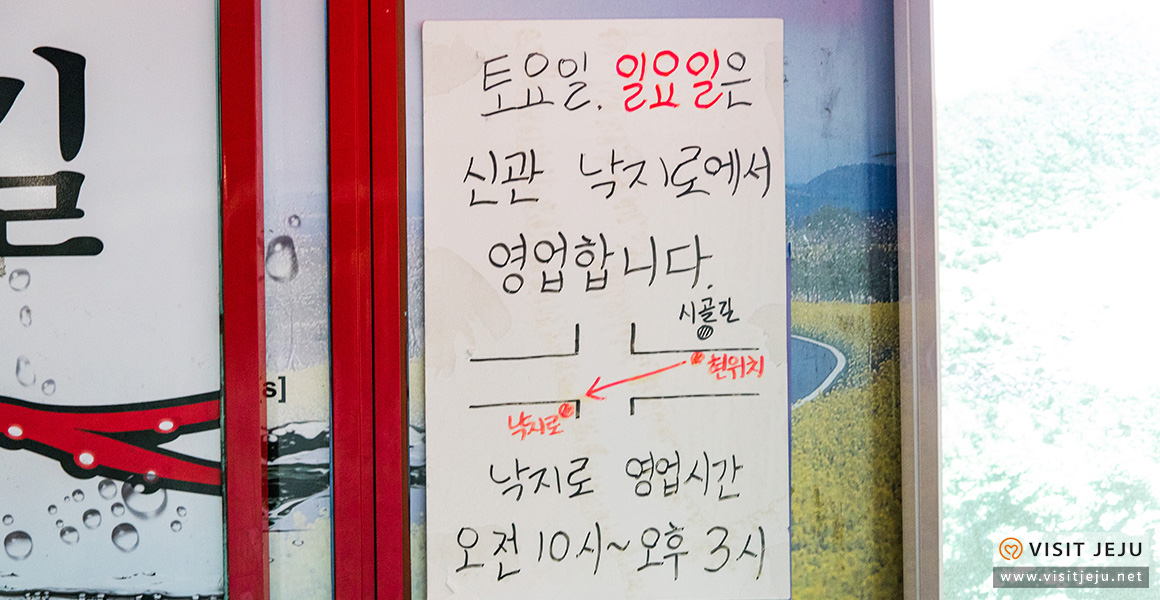 길
s]
토요일. 일요일은
신관 낙지로에서
영업합니다.
시골길
현위치
낙지로
낙지로 영업시간
오전 10시~오후 3시
VISIT JEJU
www.visitjeju.net